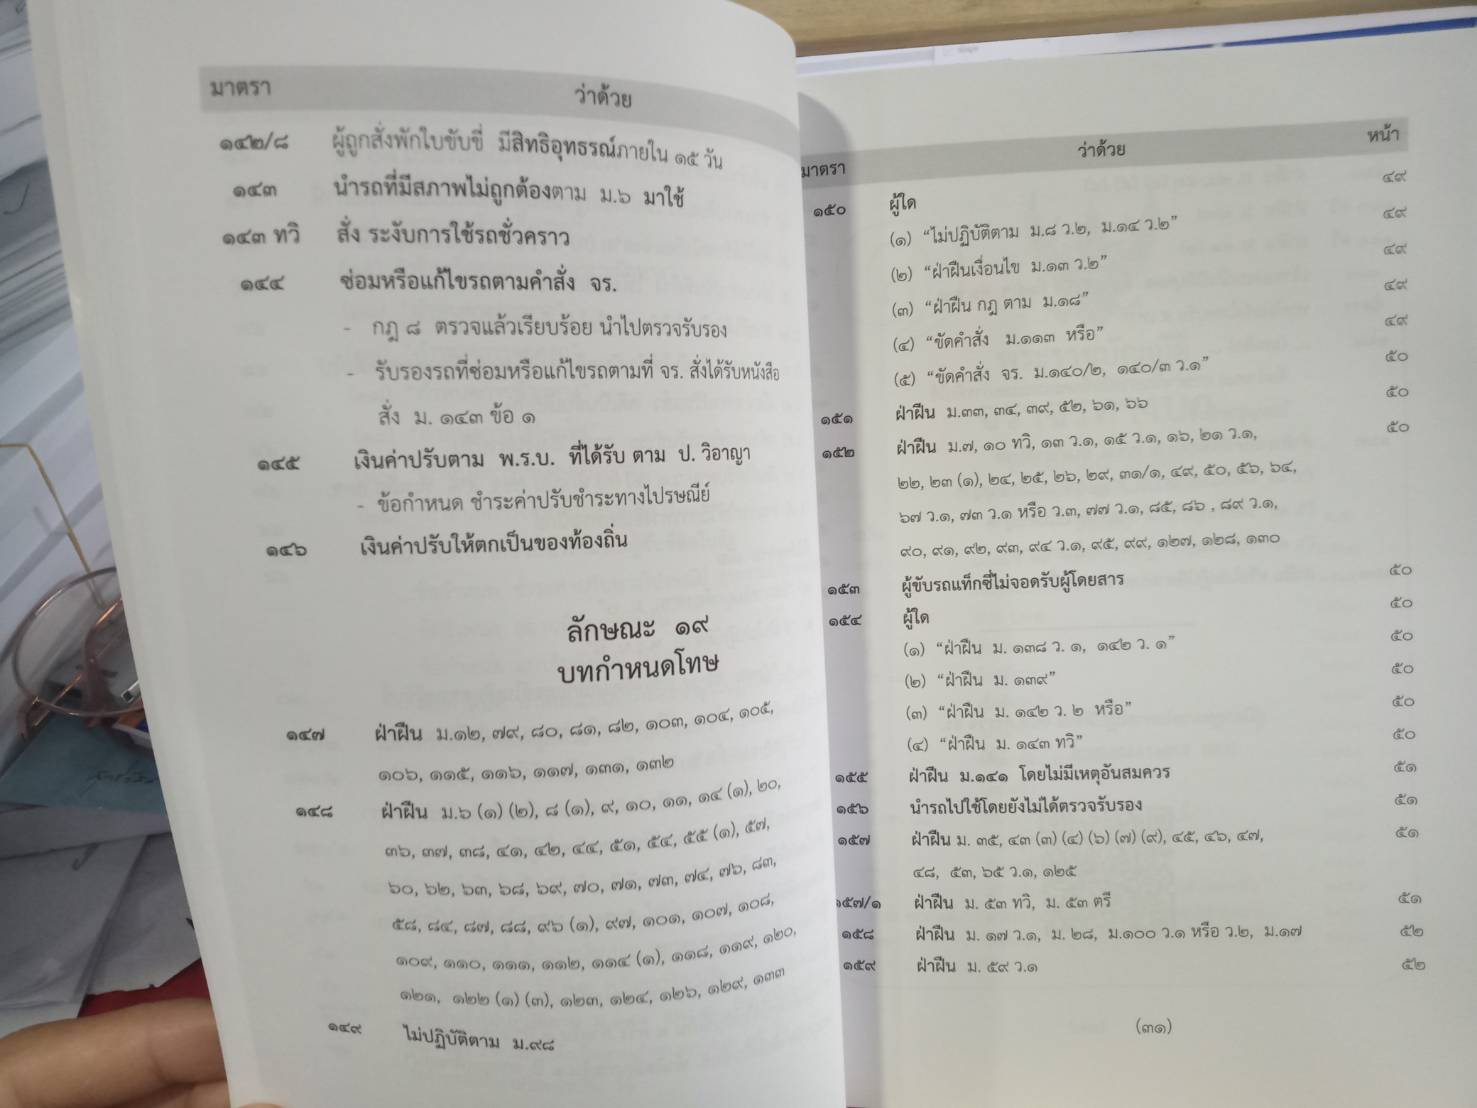 มาตรา ว่าด้วย
๑๔๒/๘ ผู้ถูกสั่งพักใบขับขี่ มีสิทธิอุทธรณ์ภายใน ๑๕ วัน
๑๔๓ นำรถที่มีสภาพไม่ถูกต้องตาม ม.๖ มาใช้
๑๔๓ ทวิ สั่ง ระงับการใช้รถชั่วคราว
๑๔๔ ซ่อมหรือแก้ไขรถตามคำสั่ง จร.
- กฎ ๘ ตรวจแล้วเรียบร้อย นำไปตรวจรับรอง
- รับรองรถที่ซ่อมหรือแก้ไขรถตามที่ จร. สั่งได้รับหนังสือ
สั่ง ม. ๑๔๓ ข้อ ๑
๑๔๕ เงินค่าปรับตาม พ.ร.บ. ที่ได้รับ ตาม ป. วิอาญา
- ข้อกำหนด ชำระค่าปรับชำระทางไปรษณีย์
๑๔๖ เงินค่าปรับให้ตกเป็นของท้องถิ่น
ลักษณะ ๑๙
บทกำหนดโทษ
๑๔๗ ฝ่าฝืน ม.๑๒, ๗๙, ๘๐, ๘๑, ๘๒, ๑๐๓, ๑๐๔, ๑๐๕,
๑๐๖, ๑๑๕, ๑๑๖, ๑๑๗, ๑๓๑, ๑๓๒
๑๔๘ ฝ่าฝืน ม.๖ (๑) (๒), ๘ (๑), ๙, ๑๐, ๑๑, ๑๔ (๑), ๒๐,
๓๖, ๓๗, ๓๘, ๔๑, ๔๒, ๔๔, ๕๑, ๕๔, ๕๕ (๑), ๕๗,
๖๐, ๖๒, ๖๓, ๖๘, ๖๙, ๗๐, ๗๑, ๗๓, ๗๔, ๗๖, ๘๓,
๕๘, ๘๔, ๘๗, ๘๘, ๙๖ (๑), ๙๗, ๑๐๑, ๑๐๗, ๑๐๘,
๑๐๙, ๑๑๐, ๑๑๑, ๑๑๒, ๑๑๔ (๑), ๑๑๘, ๑๑๙, ๑๒๐,
๑๒๑, ๑๒๒ (๑) (๓), ๑๒๓, ๑๒๔, ๑๒๖, ๑๒๙, ๑๓๓
๑๔๙ ไม่ปฏิบัติตาม ม.๙๘
มาตรา ว่าด้วย หน้า
๑๕๐ ผู้ใด ๔๙
(๑) “ไม่ปฏิบัติตาม ม.๘ ว.๒, ม.๑๔ ว.๒” ๔๙
(๒) “ฝ่าฝืนเงื่อนไข ม.๑๓ ว.๒” ๔๙
(๓) “ฝ่าฝืน กฎ ตาม ม.๑๘” ๔๙
(๔) “ขัดคำสั่ง ม.๑๑๓ หรือ” ๔๙
(๕) “ขัดคำสั่ง จร. ม.๑๔๐/๒, ๑๔๐/๓ ว.๑” ๕๐
๑๕๑ ฝ่าฝืน ม.๓๓, ๓๔, ๓๙, ๕๒, ๖๑, ๖๖ ๕๐
๑๕๒ ฝ่าฝืน ม.๗, ๑๐ ทวิ, ๑๓ ว.๑, ๑๕ ว.๑, ๑๖, ๒๑ ว.๑, ๕๐
๒๒, ๒๓ (๑), ๒๔, ๒๕, ๒๖, ๒๙, ๓๑/๑, ๔๙, ๕๐, ๕๖, ๖๔,
๖๗ ว.๑, ๗๓ ว.๑ หรือ ว.๓, ๗๗ ว.๑, ๘๕, ๘๖ , ๘๙ ว.๑,
๙๐, ๙๑, ๙๒, ๙๓, ๙๔ ว.๑, ๙๕, ๙๙, ๑๒๗, ๑๒๘, ๑๓๐
๑๕๓ ผู้ขับรถแท็กซี่ไม่จอดรับผู้โดยสาร ๕๐
๑๕๔ ผู้ใด ๕๐
(๑) “ฝ่าฝืน ม. ๑๓๘ ว. ๑, ๑๔๒ ว. ๑” ๕๐
(๒) “ฝ่าฝืน ม. ๑๓๙” ๕๐
(๓) “ฝ่าฝืน ม. ๑๔๒ ว. ๒ หรือ” ๕๐
(๔) “ฝ่าฝืน ม. ๑๔๓ ทวิ” ๕๐
๑๕๕ ฝ่าฝืน ม.๑๔๑ โดยไม่มีเหตุอันสมควร ๕๑
๑๕๖ นำรถไปใช้โดยยังไม่ได้ตรวจรับรอง ๕๑
๑๕๗ ฝ่าฝืน ม. ๓๕, ๔๓ (๓) (๔) (๖) (๗) (๙), ๔๕, ๔๖, ๔๗, ๕๑
๔๘, ๕๓, ๖๕ ว.๑, ๑๒๕
๑๕๗/๑ ฝ่าฝืน ม. ๕๓ ทวิ, ม. ๕๓ ตรี ๕๑
๑๕๘ ฝ่าฝืน ม. ๑๗ ว.๑, ม. ๒๘, ม.๑๐๐ ว.๑ หรือ ว.๒, ม.๑๗ ๕๒
๑๕๙ ฝ่าฝืน ม. ๕๙ ว.๑ ๕๒
(๓๑)